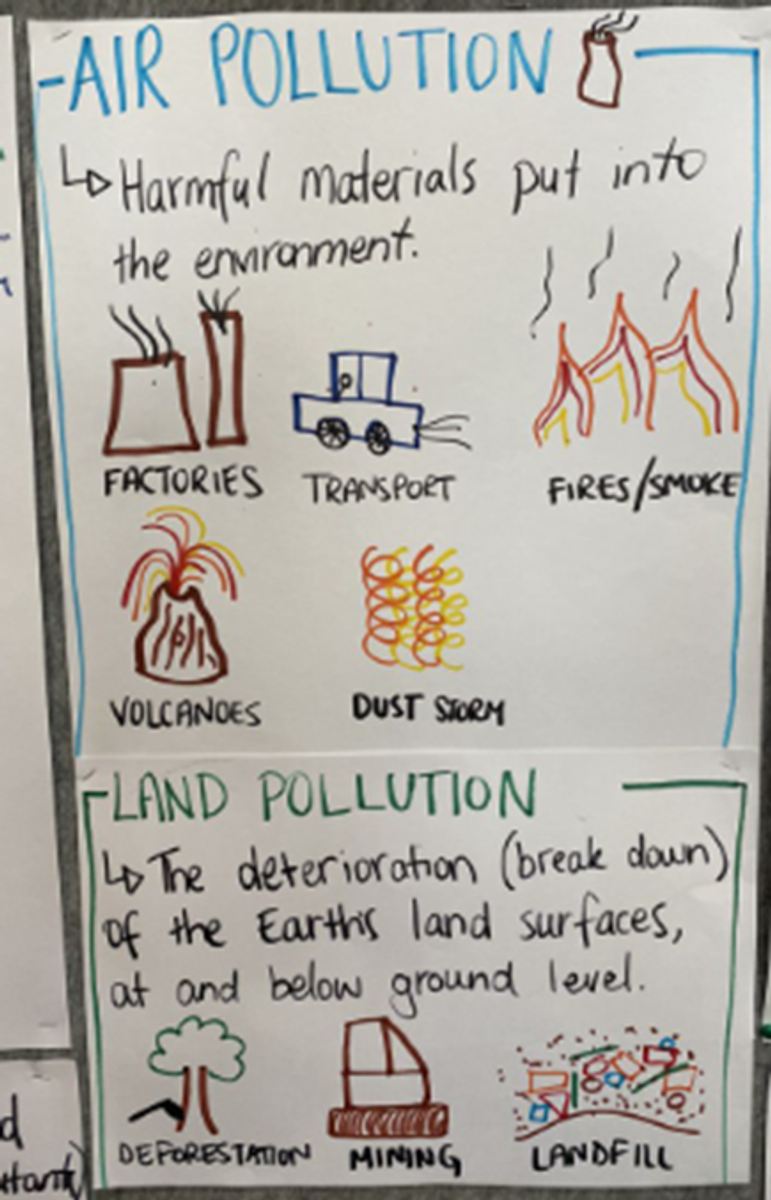 -AIR POLLUTION
↳Harmful materials put into
the environment.
FACTORIES
TRANSPORT
FIRES/SMOKE
VOLCANOES
DUST STORM
LAND POLLUTION
↳The deterioration (break down)
of the Earth's land surfaces,
at and below ground level.
DEFORESTATION
MINING
LANDFILL